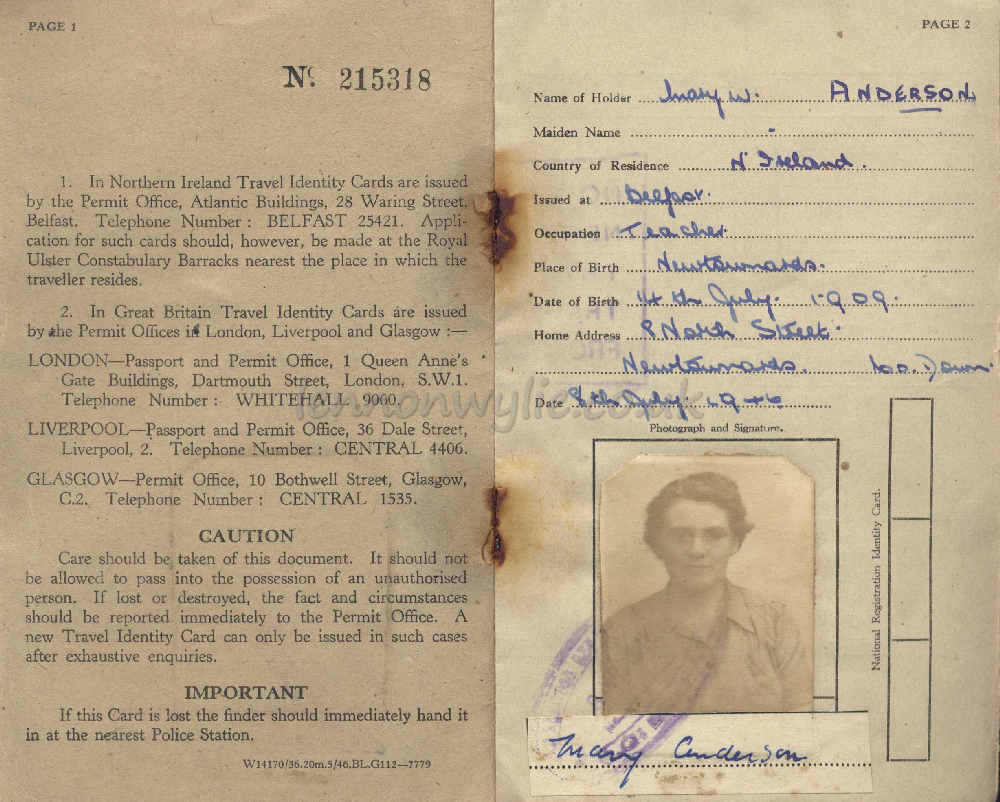 PAGE 1
Nº 215318
1. In Northern Ireland Travel Identity Cards are issued
by the Permit Office, Atlantic Buildings, 28 Waring Street,
Belfast. Telephone Number : BELFAST 25421. Appli-
cation for such cards should, however, be made at the Royal
Ulster Constabulary Barracks nearest the place in which the
traveller resides.
2. In Great Britain Travel Identity Cards are issued
by the Permit Offices in London, Liverpool and Glasgow :—
LONDON—Passport and Permit Office, 1 Queen Anne's
Gate Buildings, Dartmouth Street, London, S.W.1.
Telephone Number : WHITEHALL 9000.
LIVERPOOL—Passport and Permit Office, 36 Dale Street,
Liverpool, 2. Telephone Number : CENTRAL 4406.
GLASGOW—Permit Office, 10 Bothwell Street, Glasgow,
C.2. Telephone Number : CENTRAL 1535.
CAUTION
Care should be taken of this document. It should not
be allowed to pass into the possession of an unauthorised
person. If lost or destroyed, the fact and circumstances
should be reported immediately to the Permit Office. A
new Travel Identity Card can only be issued in such cases
after exhaustive enquiries.
IMPORTANT
If this Card is lost the finder should immediately hand it
in at the nearest Police Station.
W14170/36.20m.5/46.BL.G112—7779
PAGE 2
Name of Holder Mary W. ANDERSON
Maiden Name -
Country of Residence N. Ireland.
Issued at Belfast.
Occupation Teacher
Place of Birth Newtownards.
Date of Birth 14th July. 1909.
Home Address 8 North Street.
Newtownards. Co. Down
Date 8th July. 1946
Photograph and Signature.
National Registration Identity Card.
Mary Anderson
lennonwylie.co.uk